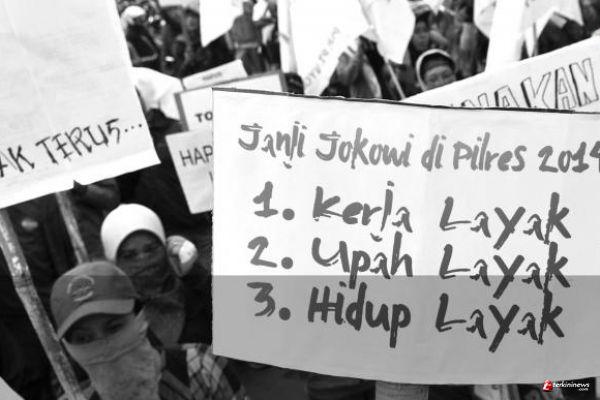 AK TERUS...
TO
HAP
NAKAN
Janji Jokowi di Pilres 2014
1. Kerja Layak
2. Upah Layak
3. Hidup Layak
terkininews
.com